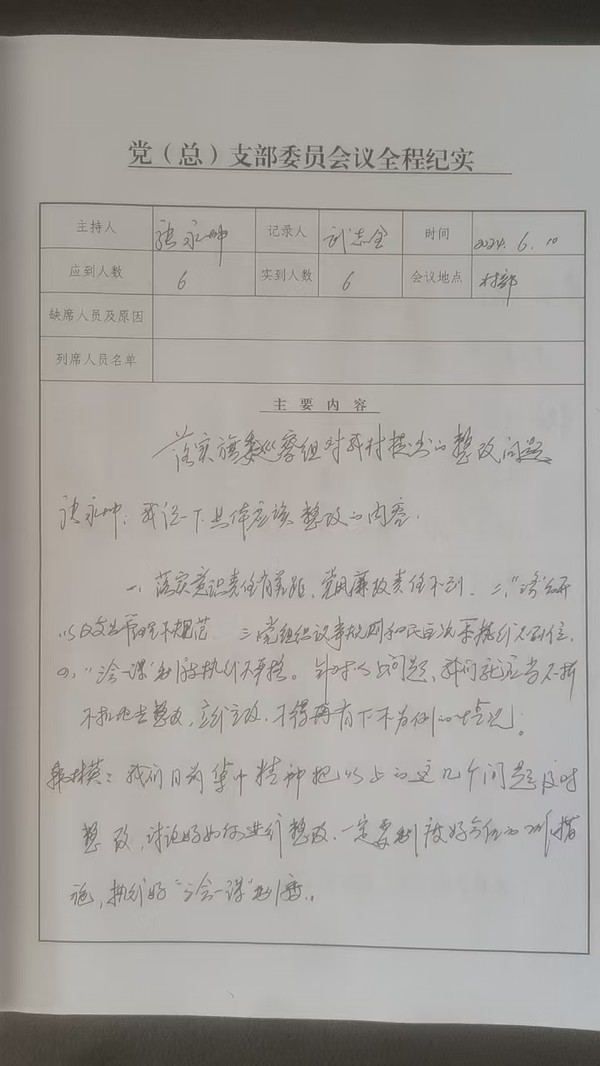 党（总）支部委员会议全程纪实
主持人 张永坤 记录人 武志全 时间 2024.6.10
应到人数 6 实到人数 6 会议地点 村部
缺席人员及原因
列席人员名单
主要内容
落实旗委巡察组对我村提出的整改问题
张永坤：我说一下具体应该整改的内容.
一、落实意识责任有差距，党风廉政责任不到. 二、
不规范 三、党组织议事规则和民主决策执行不到位.
四、"三会一课"制度执行不严格。针对以上问题，我们就应当不折
不扣地去整改，立行立改，不得再有下不为例的情况。
我们目前集中精神把以上的这几个问题及时
整改，讨论好如何进行整改，一定要制度好
施，执行好"三会一课"制度。